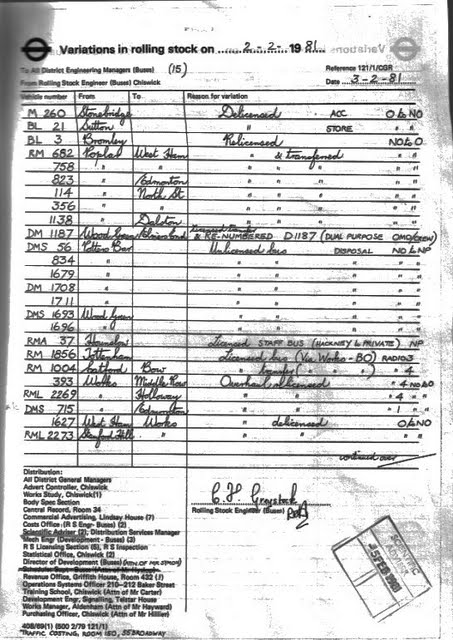 Variations in rolling stock on 2-2- 1981
To All District Engineering Managers (Buses) (15) Reference 121/1/CGR
From Rolling Stock Engineer (Buses) Chiswick Date 3-2-81
Vehicle number From To Reason for variation
M 260 Stonebridge Delicensed ACC O to NO
BL 21 Sutton " STORE " "
BL 3 Bromley Relicensed NO to O
RM 682 Poplar West Ham " & transferred " "
758 " " " " " "
823 " Edmonton " " " "
114 " North St " " " "
356 " " " " " "
1138 " Dalston " " " "
DM 1187 Wood Green & RE-NUMBERED D1187 (DUAL PURPOSE OMO/CREW)
DMS 56 Potters Bar Unlicensed bus DISPOSAL NO to NP
834 " " " " "
1679 " " " " "
DM 1708 " " " " "
1711 " " " " "
DMS 1693 Wood Green " " " "
1696 " " " " "
RMA 37 Hounslow Licensed STAFF BUS (HACKNEY to PRIVATE) NP
RM 1856 Tottenham Licensed bus (Via Works - BO) RADIOS
RM 1004 Catford Bow " transfer ( " " ) " 4
393 Works Middle Row Overhaul relicensed " 4 NO to O
RML 2269 " Holloway " " " 4 " "
DMS 715 " Edmonton " " " 1 " "
1627 West Ham Works " delicensed O to NO
RML 2273 Stamford Hill " " " " "
continued over
Distribution:
All District General Managers
Advert Controller, Chiswick
Works Study, Chiswick(1)
Body Spec Section
Central Record, Room 34
Commercial Advertising, Lindsay House (7)
Costs Office (R S Engr- Buses) (2)
Scientific Adviser (2), Distribution Services Manager
Mech Engr (Development - Buses) (3)
R S Licensing Section (5), R S Inspection
Statistical Office, Chiswick (2)
Director of Development (Buses)
Revenue Office, Griffith House, Room 432 (1)
Operations Systems Officer 210-212 Baker Street
Training School, Chiswick (Attn of Mr Carter)
Development Engr, Signalling, Telstar House
Works Manager, Aldenham (Attn of Mr Hayward)
Purchasing Officer, Chiswick (Attn of Mr Hillier)
408/69(1) (500 2/79 121/1)
TRAFFIC COSTING, ROOM 150, 55 BROADWAY
Rolling Stock Engineer (Buses)